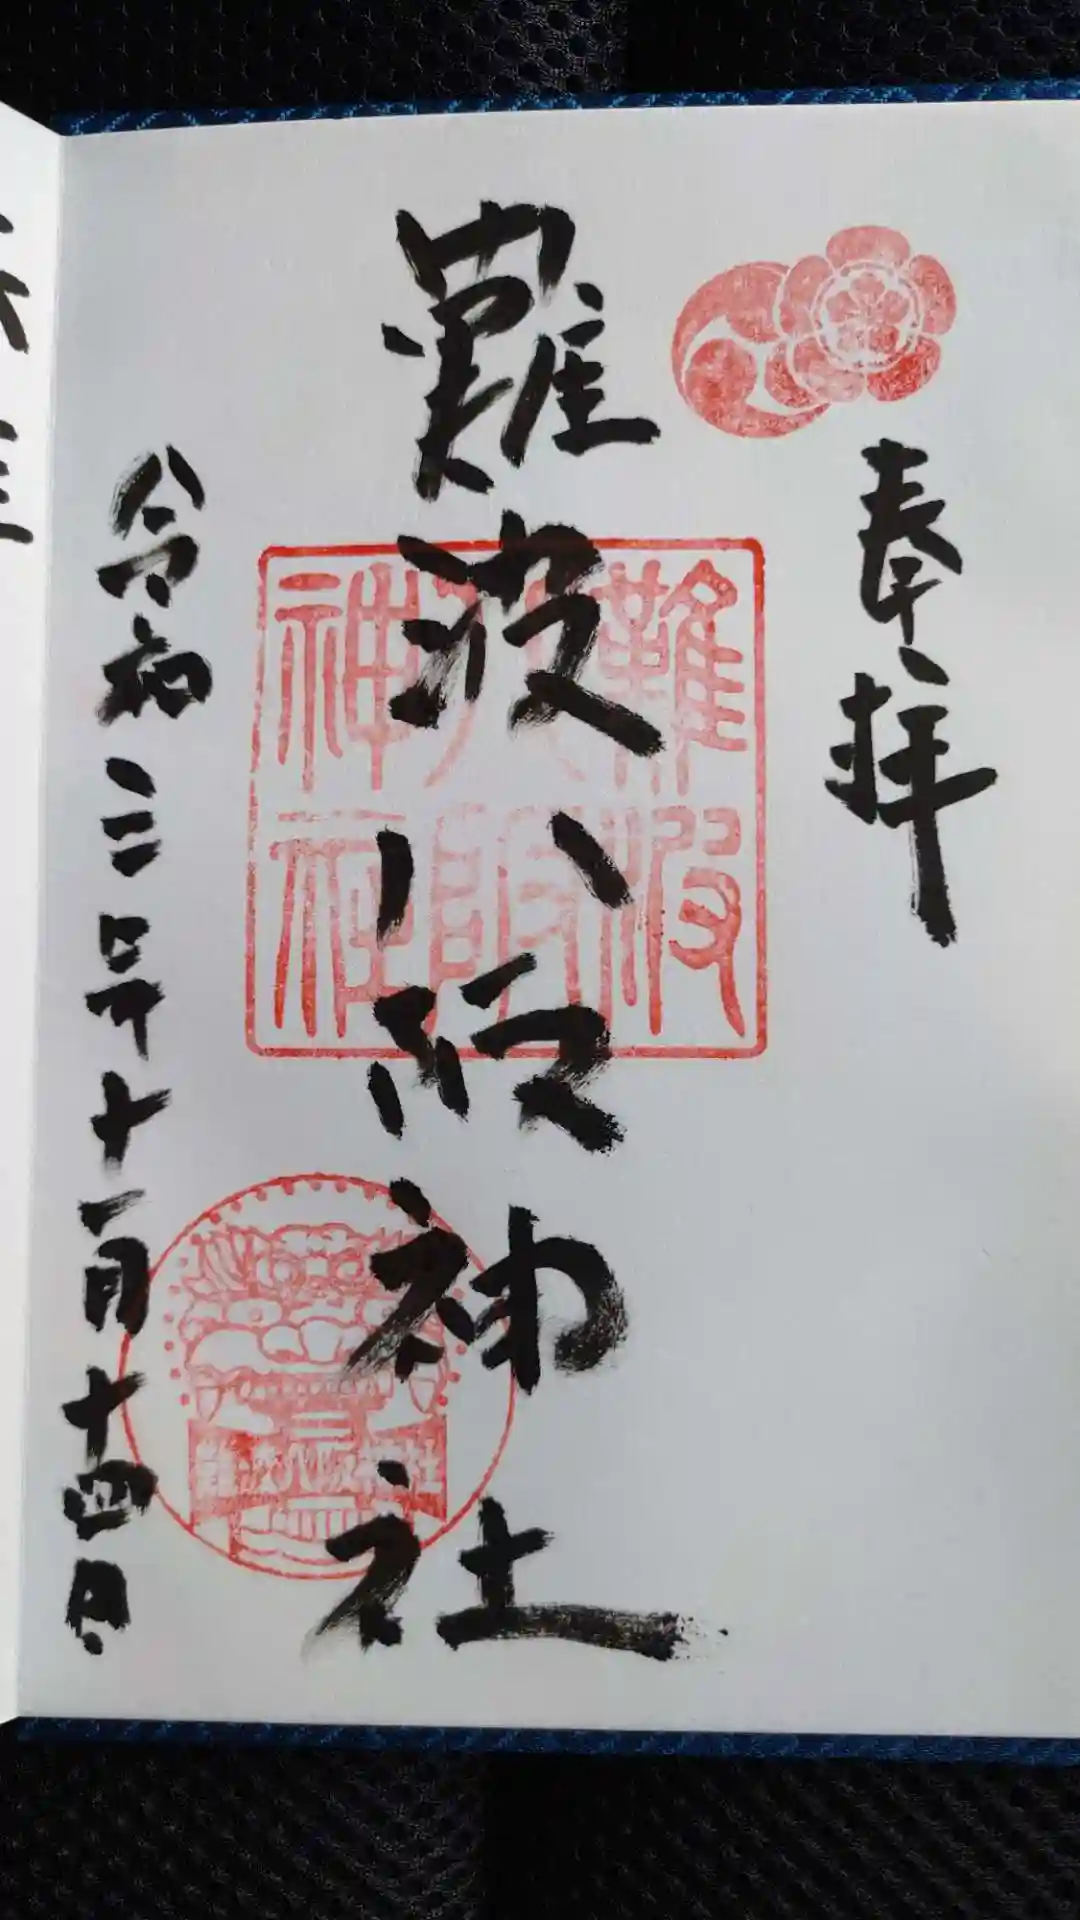 奉拝
難波八阪神社
難波
八阪
神社
難波八阪神社
令和三年十一月十四日